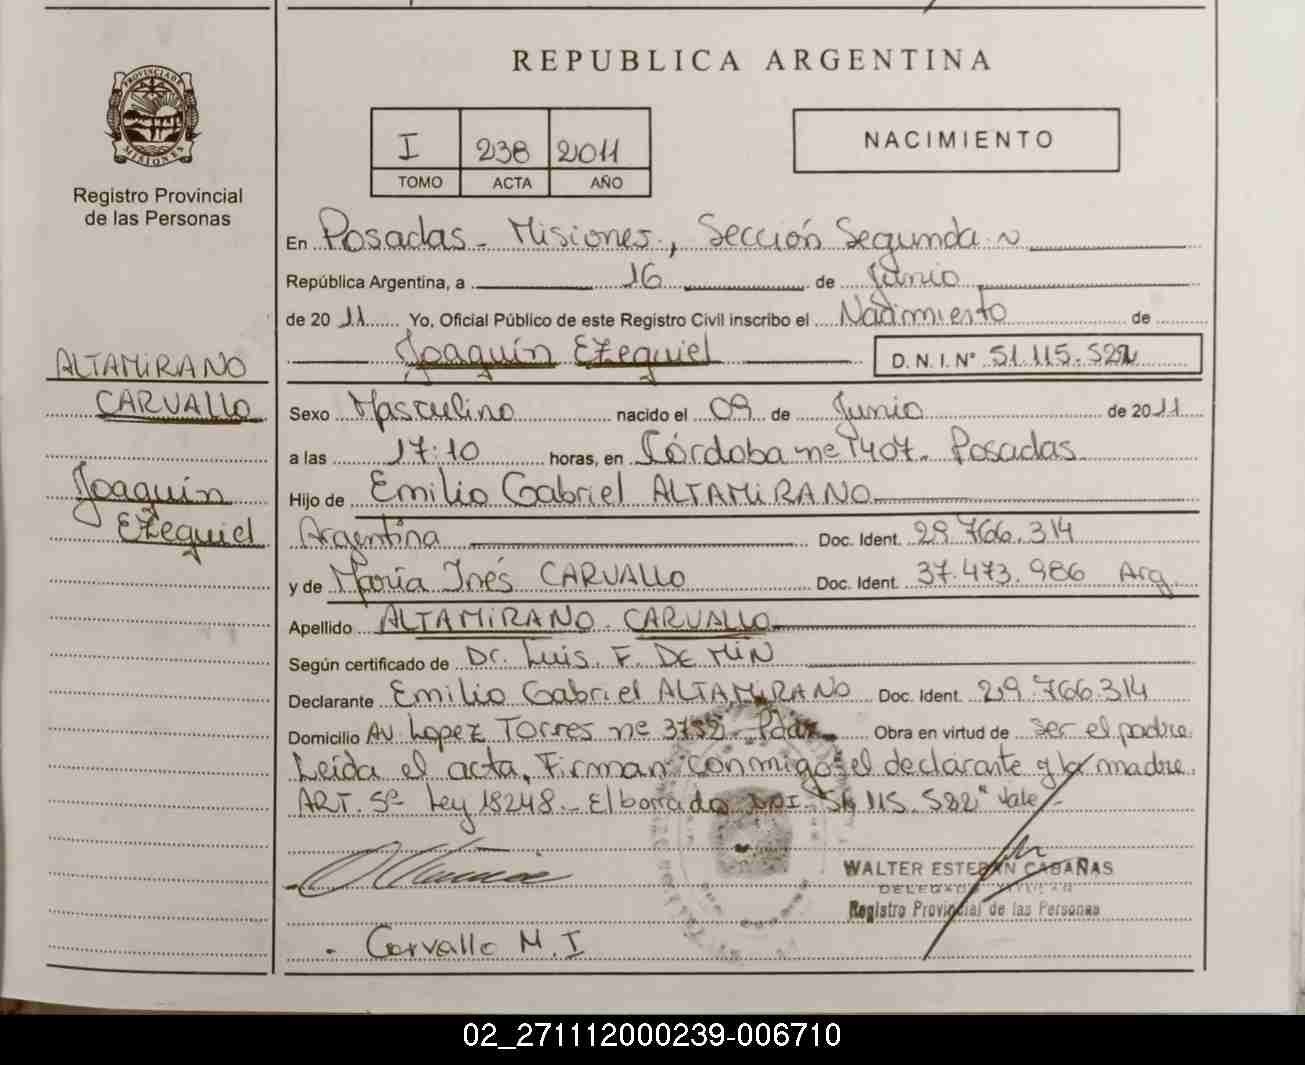 REPUBLICA ARGENTINA
PROVINCIA DE MISIONES
I 238 2011
TOMO ACTA AÑO
NACIMIENTO
Registro Provincial
de las Personas
En Posadas - Misiones, Sección Segunda
República Argentina, a 16 de Junio
de 2011 Yo, Oficial Público de este Registro Civil inscribo el Nacimiento de
Joaquín Ezequiel D. N. I. N° 51.115.522
ALTAMIRANO
CARVALLO
Joaquín
Ezequiel
Sexo Masculino nacido el 09 de Junio de 2011
a las 17:10 horas, en Córdoba nº 1407. Posadas
Hijo de Emilio Gabriel ALTAMIRANO
Argentina Doc. Ident. 29.766.314
y de María Inés CARVALLO Doc. Ident. 37.473.986 Arg.
Apellido ALTAMIRANO CARVALLO
Según certificado de Dr. Luis. F. DE MIN
Declarante Emilio Gabriel ALTAMIRANO Doc. Ident. 29.766.314
Domicilio Av. Lopez Torres nº Obra en virtud de ser el padre.
Leída el acta, Firman conmigo el declarante y la madre.
ART. 5º Ley 18248.- El borrado DNI 51.115.522" Vale-
WALTER ESTEBAN CABAÑAS
DELEGADO TITULAR
Registro Provincial de las Personas
Carvallo M. I
02_271112000239-006710